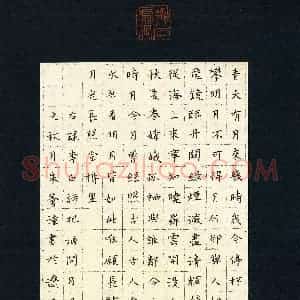 青天有月來幾時我今停杯
攀明月不可得月行卻與人
飛鏡臨丹闕綠煙滅盡清輝
從海上來寧知曉向雲間沒
秋復春嫦娥孤栖與誰鄰今
時月今月曾經照古人古人
水共看明月皆如此唯願
月光長照金樽里
右錄李詩把酒問月
Shufaziliao.com